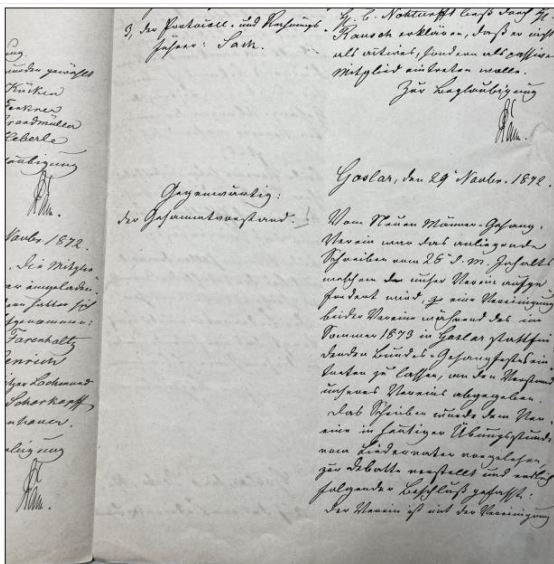 wurden gewählt
Kücken
Fenkner
Brandmüller
Heberle
läubigung
Novbr. 1872.
. Die Mitglie
eingeladen
hatten sich
Farenholtz
Henrich
Lochmund
Schorkopff
3, der Protocoll- und Rechnungs-
führer: Sack.
Gegenwärtig:
der Gesammtvorstand.
ließ durch H.
Rausch erklären, daß er nicht
als actives, sondern als passives
Mitglied eintreten wolle.
Zur Beglaubigung
Goslar, den 29 Novbr. 1872.
Vom Neuen Männer-Gesang-
Verein war das anliegende
Schreiben vom 26 d. M. Inhalts
welchem der unser Verein aufge
fordert wird, eine Vereinigung
beider Vereine während des im
Sommer 1873 in Goslar stattfin
denden Bundes-Gesangfestes ein
treten zu lassen, an den Vorstand
unseres Vereins abgegeben.
Das Schreiben wurde dem Ver-
eine in heutiger Übungsstunde
vom Liedervater vorgelesen,
zur Debatte verstellt und endlich
folgender Beschluß gefasst:
Der Verein ist mit der Vereinigung